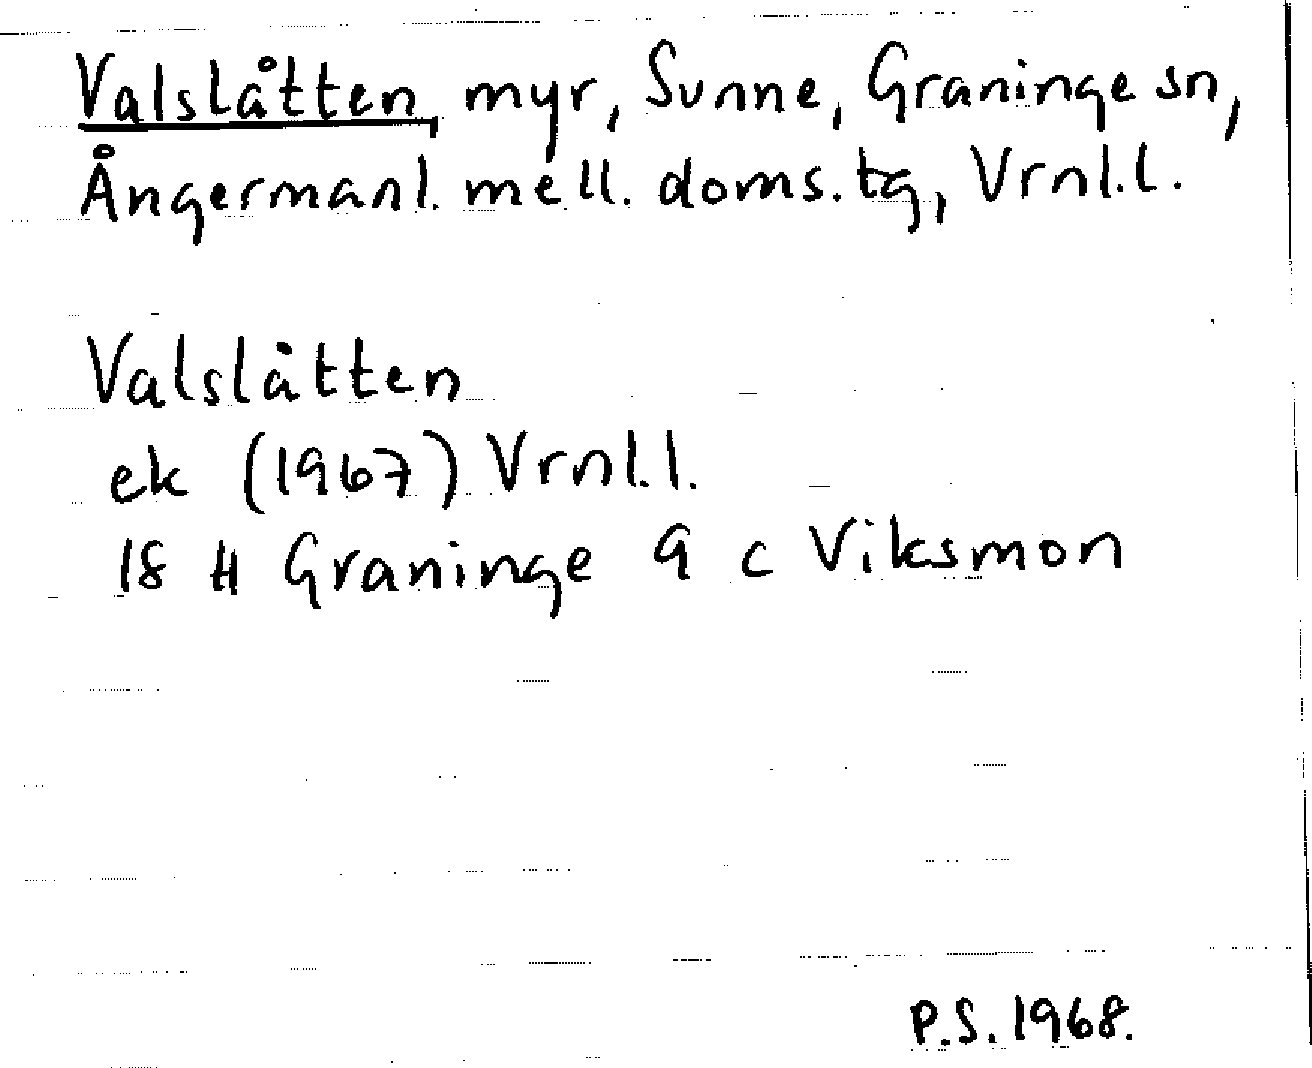 Valslåtten, myr, Sunne, Graninge sn,
Ångermanl. mell. doms. tg, Vrnl.l.
Valslåtten
ek (1967) Vrnl.l.
18 H Graninge 9 c Viksmon
P.S. 1968.